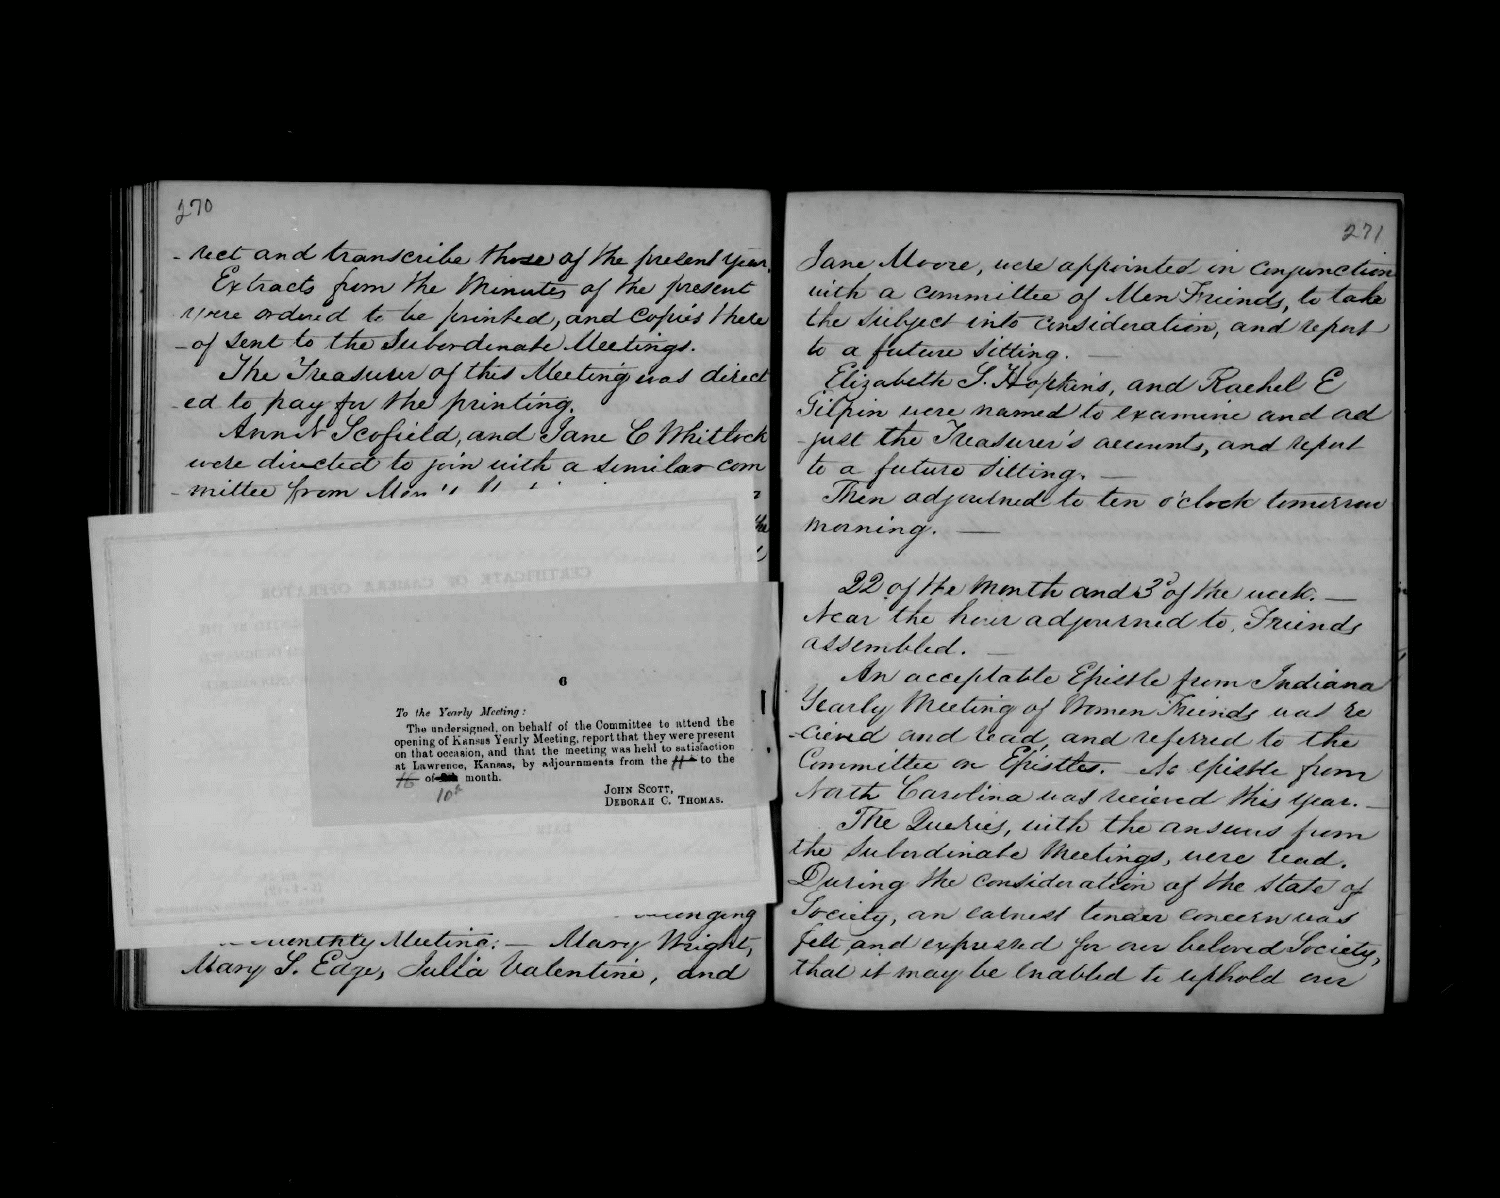 270
- rect and transcribe those of the present year.
Extracts from the Minutes of the present
were ordered to be printed, and copies there
- of sent to the Subordinate Meetings.
The Treasurer of this Meeting was direct
- ed to pay for the printing.
Ann N Scofield, and Jane C Whitlock
were directed to join with a similar com
- mittee from
the
CERTIFICATE OF CAMERA OPERATOR
6
To the Yearly Meeting:
The undersigned, on behalf of the Committee to attend the
opening of Kansas Yearly Meeting, report that they were present
on that occasion, and that the meeting was held to satisfaction
at Lawrence, Kansas, by adjournments from the 11th to the
16 of 9th month.
10th
JOHN SCOTT,
DEBORAH C. THOMAS.
belonging
Monthly Meeting. — Mary Wright,
Mary S. Edge, Julia Valentine, and
271
Jane Moore, were appointed in conjunction
with a committee of Men Friends, to take
the subject into consideration, and report
to a future sitting. —
Elizabeth S. Hopkins, and Rachel E
Gilpin were named to examine and ad
- just the Treasurer's accounts, and report
to a future sitting. —
Then adjourned to ten o'clock tomorrow
morning. —
22 of the month and 3d of the week. —
Near the hour adjourned to, Friends
assembled. —
An acceptable Epistle from Indiana
Yearly Meeting of Women Friends was re
- cieved and read, and referred to the
Committee on Epistles. — No epistle from
North Carolina was recieved this year. —
The Queries, with the answers from
the Subordinate Meetings, were read.
During the consideration of the state of
Society, an earnest tender concern was
felt and expressed for our beloved Society,
that it may be enabled to uphold our